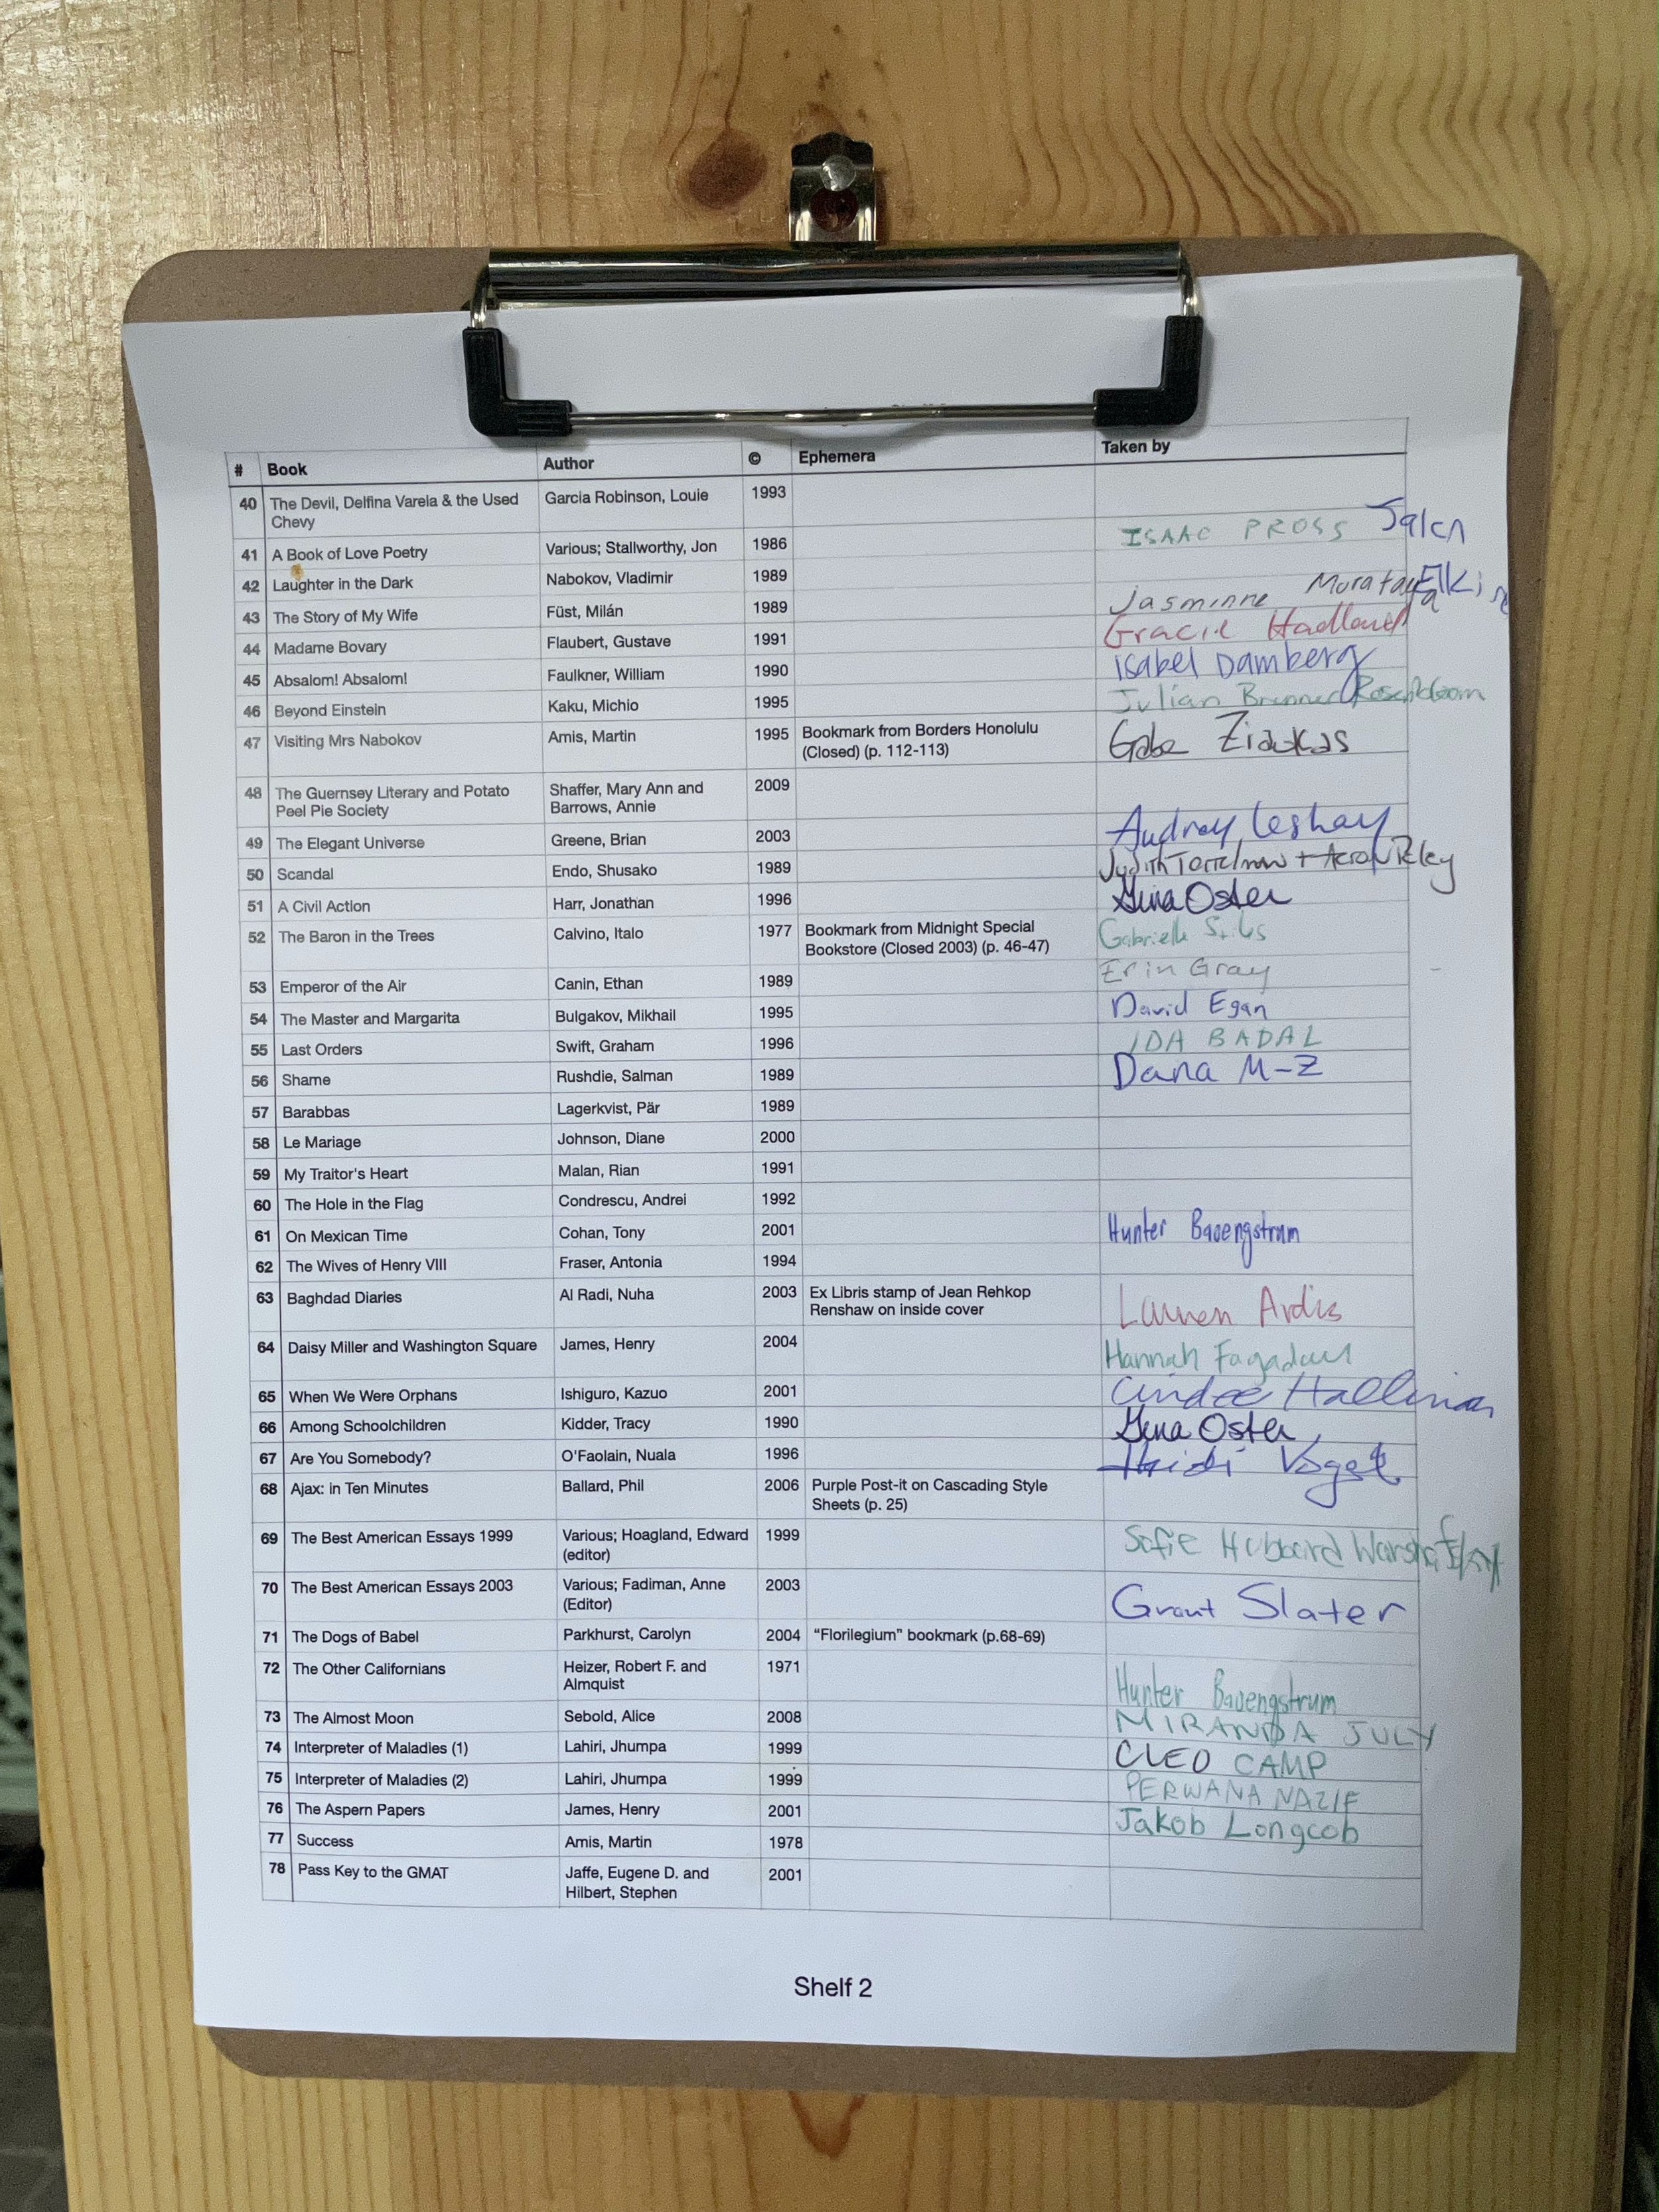 # Book Author © Ephemera Taken by
40 The Devil, Delfina Varela & the Used Garcia Robinson, Louie 1993
Chevy
41 A Book of Love Poetry Various; Stallworthy, Jon 1986 ISAAC PROSS Jalen
42 Laughter in the Dark Nabokov, Vladimir 1989
43 The Story of My Wife Füst, Milán 1989 Jasminne Murataya Elkins
44 Madame Bovary Flaubert, Gustave 1991 Gracie Hadland
45 Absalom! Absalom! Faulkner, William 1990 Isabel Damberg
46 Beyond Einstein Kaku, Michio 1995 Julian Brenner
47 Visiting Mrs Nabokov Amis, Martin 1995 Bookmark from Borders Honolulu Gabe
(Closed) (p. 112-113)
48 The Guernsey Literary and Potato Shaffer, Mary Ann and 2009
Peel Pie Society Barrows, Annie
49 The Elegant Universe Greene, Brian 2003 Audrey Leshay
50 Scandal Endo, Shusako 1989 Judith +
51 A Civil Action Harr, Jonathan 1996 Gina Oster
52 The Baron in the Trees Calvino, Italo 1977 Bookmark from Midnight Special Gabrielle Stiles
Bookstore (Closed 2003) (p. 46-47)
53 Emperor of the Air Canin, Ethan 1989 Erin Gray
54 The Master and Margarita Bulgakov, Mikhail 1995 David Egan
55 Last Orders Swift, Graham 1996 IDA BADAL
56 Shame Rushdie, Salman 1989 Dana M-Z
57 Barabbas Lagerkvist, Pär 1989
58 Le Mariage Johnson, Diane 2000
59 My Traitor's Heart Malan, Rian 1991
60 The Hole in the Flag Condrescu, Andrei 1992
61 On Mexican Time Cohan, Tony 2001 Hunter Baoengstrum
62 The Wives of Henry VIII Fraser, Antonia 1994
63 Baghdad Diaries Al Radi, Nuha 2003 Ex Libris stamp of Jean Rehkop Lauren Ardis
Renshaw on inside cover
64 Daisy Miller and Washington Square James, Henry 2004 Hannah
65 When We Were Orphans Ishiguro, Kazuo 2001 Cindee Hallinan
66 Among Schoolchildren Kidder, Tracy 1990 Gina Oster
67 Are You Somebody? O'Faolain, Nuala 1996 Heidi Vogel
68 Ajax: in Ten Minutes Ballard, Phil 2006 Purple Post-it on Cascading Style
Sheets (p. 25)
69 The Best American Essays 1999 Various; Hoagland, Edward 1999 Sofie Hubbard
(editor)
70 The Best American Essays 2003 Various; Fadiman, Anne 2003 Grant Slater
(Editor)
71 The Dogs of Babel Parkhurst, Carolyn 2004 “Florilegium” bookmark (p.68-69)
72 The Other Californians Heizer, Robert F. and 1971 Hunter Baoengstrum
Almquist
73 The Almost Moon Sebold, Alice 2008 MIRANDA JULY
74 Interpreter of Maladies (1) Lahiri, Jhumpa 1999 CLEO CAMP
75 Interpreter of Maladies (2) Lahiri, Jhumpa 1999 PERWANA NAZIF
76 The Aspern Papers James, Henry 2001 Jakob Longcob
77 Success Amis, Martin 1978
78 Pass Key to the GMAT Jaffe, Eugene D. and 2001
Hilbert, Stephen
Shelf 2